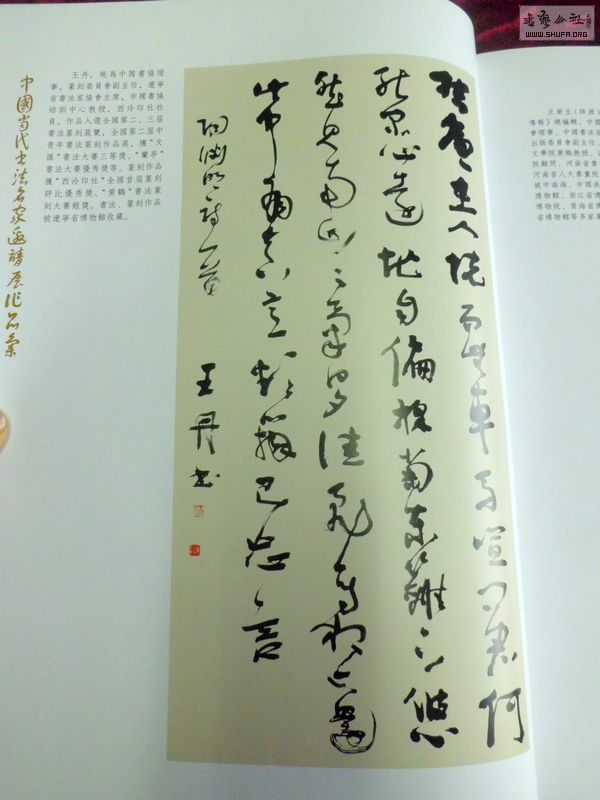 書藝公社
WWW.SHUFA.ORG
中國当代書法名家邀請展作品集
王丹，現爲中國書協理
事，篆刻委員會副主任，遼寧
省書法家協會主席，中國書協
培訓中心教授，西泠印社社
員。作品入選全國第二、三届
書法篆刻展覽，全國第二届中
青年書法篆刻作品展，獲“文
匯”書法大賽三等獎、“蘭亭”
書法大賽優秀獎等。篆刻作品
獲“西泠印社”全國首届篆刻
評比優秀獎、“黄鶴”書法篆
刻大賽銀獎。書法、篆刻作品
被遼寧省博物館收藏。
結廬在人境而無車馬喧問君何
能爾心遠地自偏採菊東籬下悠
然見南山〻氣日夕佳飛鳥相与還
此中有真意欲辨已忘言
陶淵明詩一首
王丹書
王榮生（師源）
導報》總編輯，中國
會理事，中國書法家
出版委員會副主任，
文學院榮譽教授，
院顧問，河南省書
河南省人大書畫院
被中南海，中國美
博物館，浙江省博
博物院，青海省博
省博物館等多家